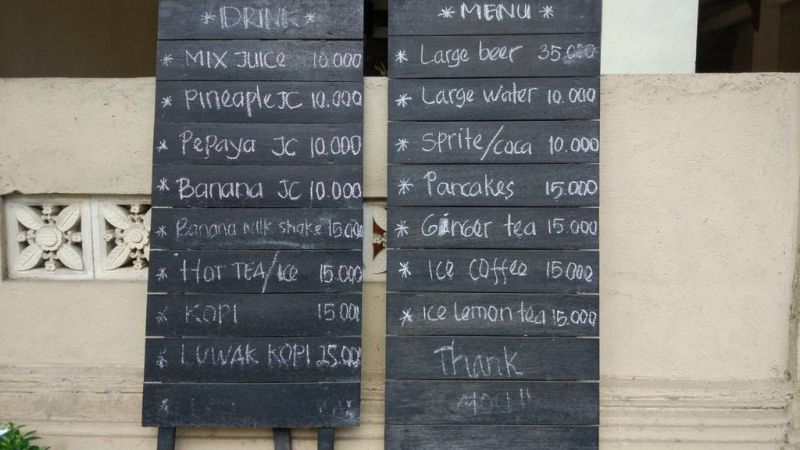 * DRINK *
* MIX JUICE 10.000
* Pineapple JC 10.000
* Pepaya JC 10.000
* Banana JC 10.000
* Banana milk shake 15.000
* HOT TEA/ice 15.000
* KOPI 15.000
* LUWAK KOPI 25.000
* MENU *
* Large beer 35.000
* Large water 10.000
* Sprite/coca 10.000
* Pancakes 15.000
* Ginger tea 15.000
* ICE COFFEE 15.000
* Ice lemon tea 15.000
Thank
you!!